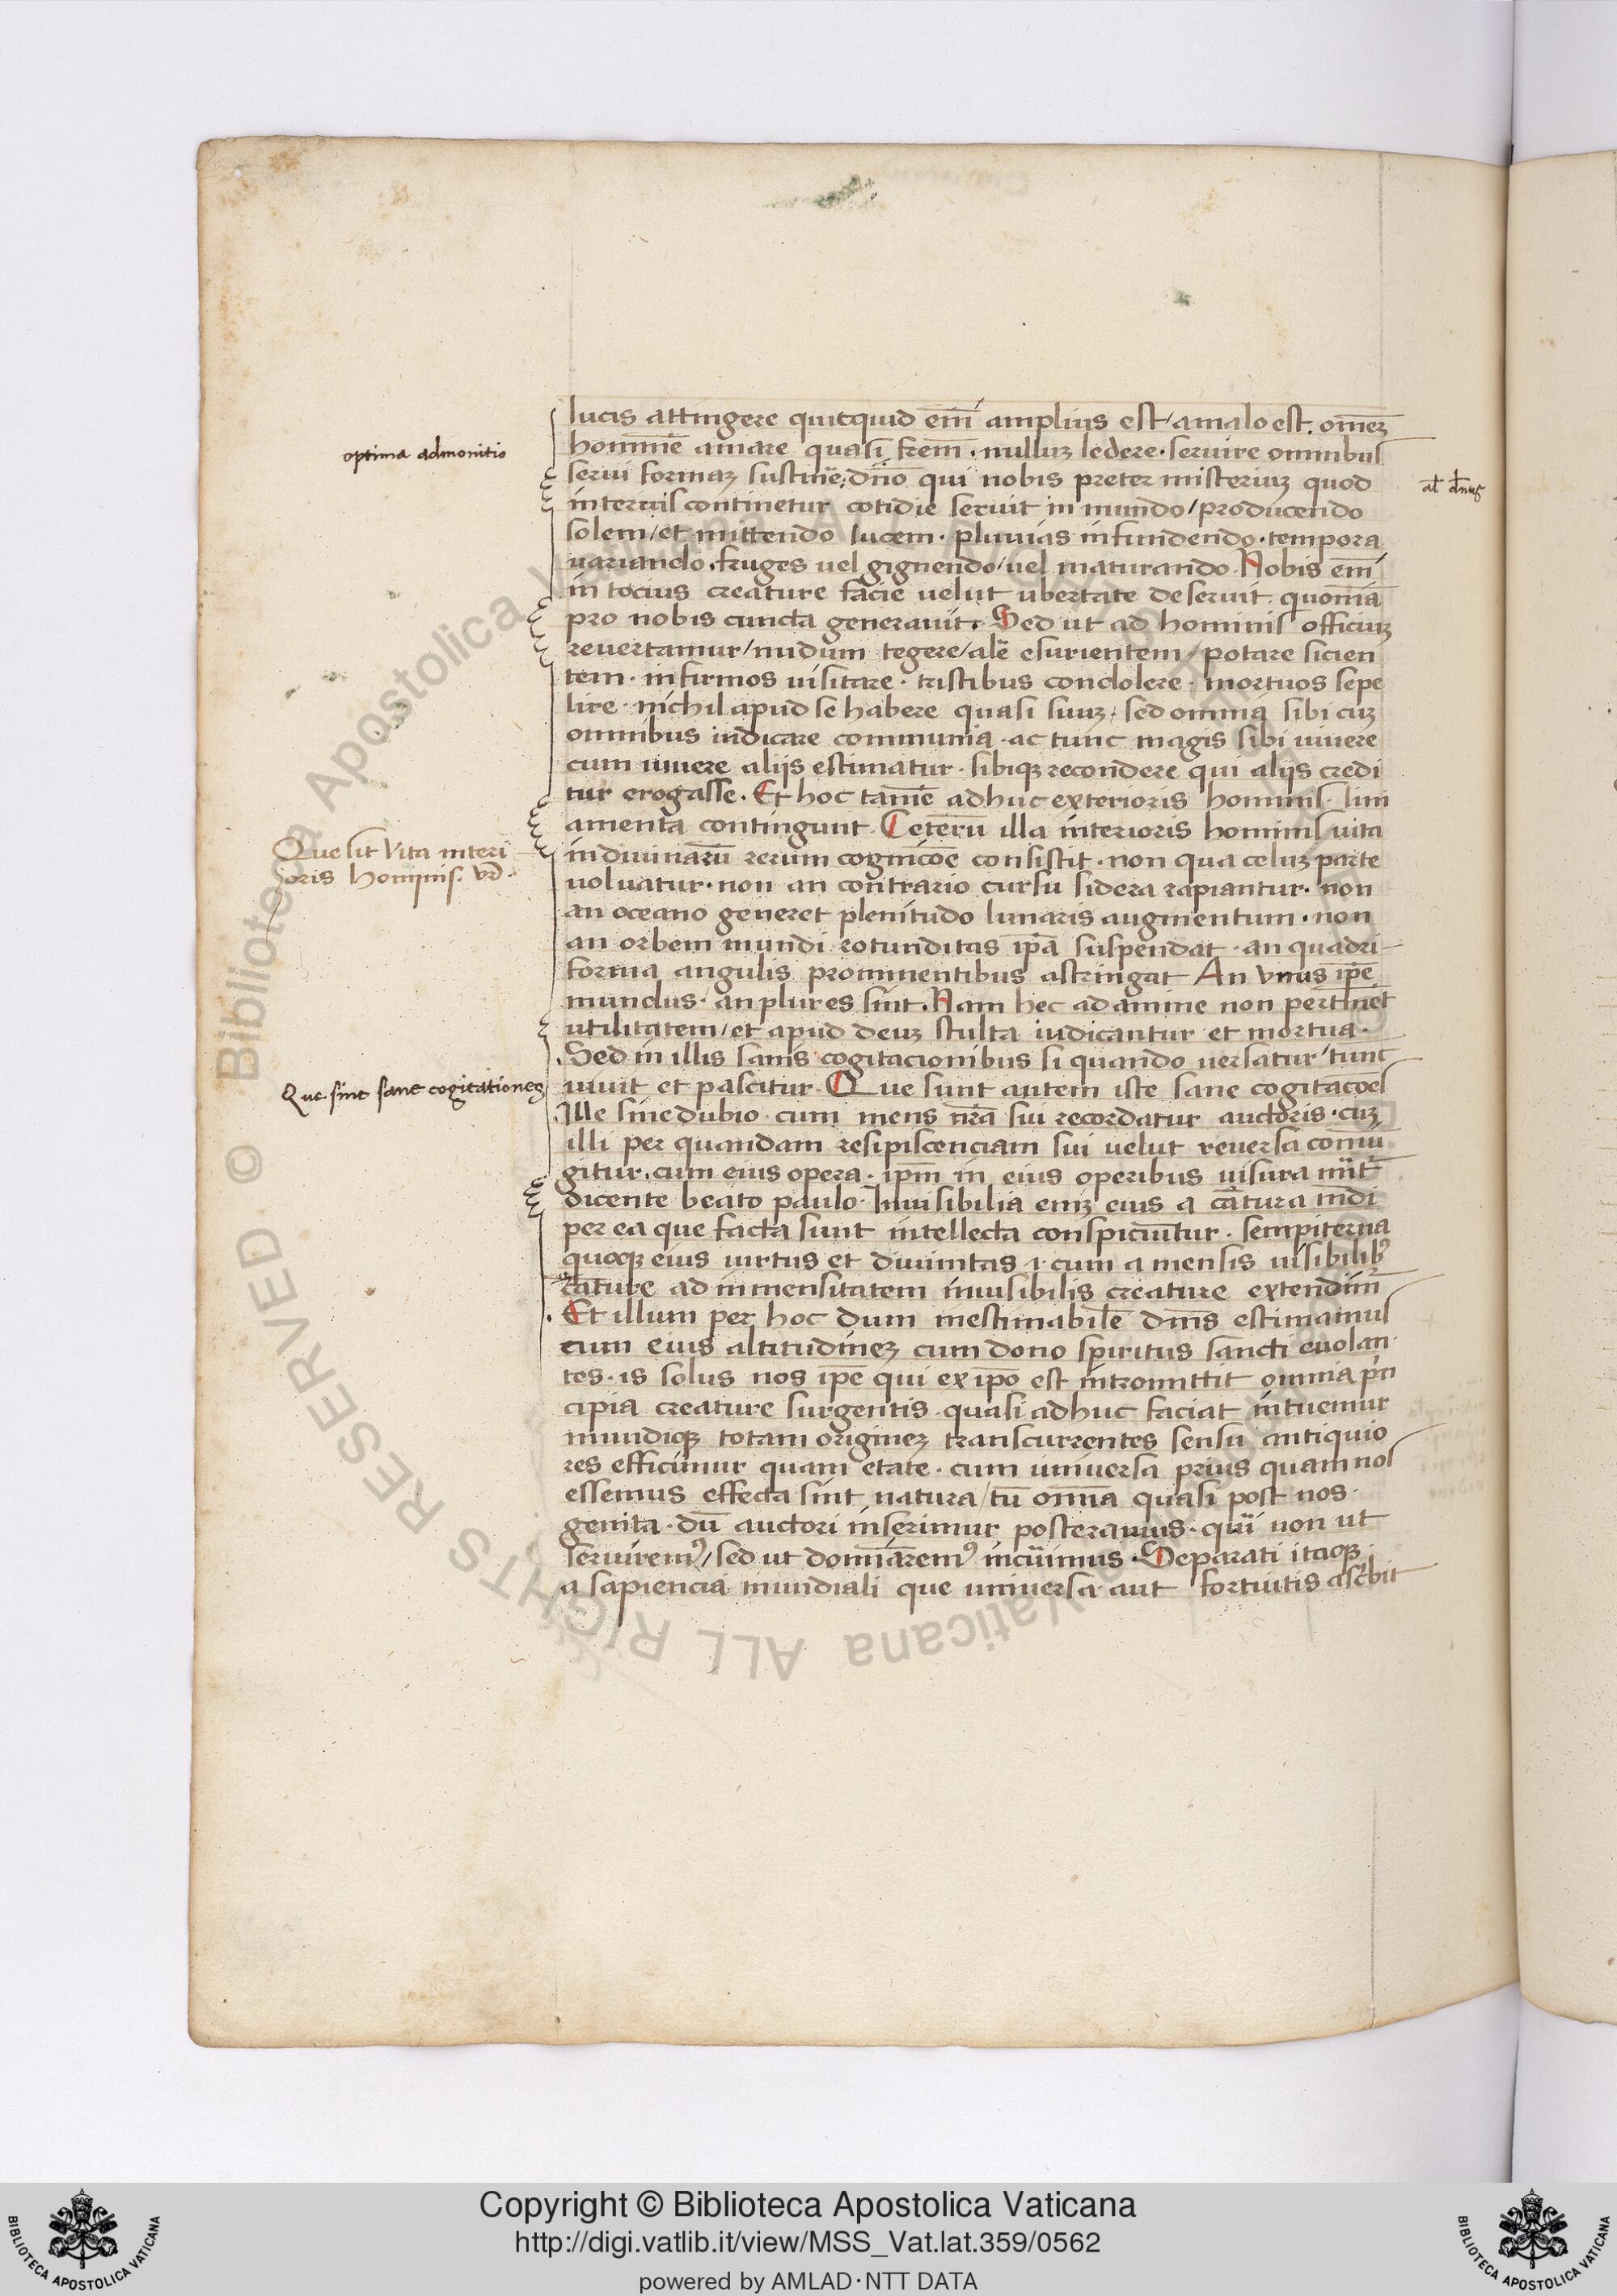 lucis attingere quicquid em̄ amplius est / a malo est. om̄eꝫ
homīnē amare quasi frem̄ · nulluꝫ ledere · seruire omnibus
optima admonitio
serui formaꝫ sustinē; dn̄o qui nobis preter misteriuꝫ quod
al' dn̄us
interuis continetur cotidie seruit in mundo / producendo
solem / et mittendo lucem · pluuias infundendo · tempora
uariando · fruges uel gignendo / uel maturando · Nobis em̄
in tocius creature facie uelut ubertate deseruit · quoniā
pro nobis cuncta generauit · Sed ut ad hominis officiuꝫ
reuertamur / nudum tegere / alē esurientem / potare sicien
tem · infirmos uisitare · tristibus condolere · mortuos sepe
lire · nichil apud se habere quasi suuꝫ · sed omnia sibi cuꝫ
omnibus iudicare communia · ac tunc magis sibi uiuere
cum uiuere alijs estimatur · sibiqꝫ recondere qui alijs credi
tur erogasse · Et hoc tamē adhuc exterioris hominis · lini
amenta contingunt · Ceterū illa interioris hominis uita
Que sit Vita interi
oris Hominis. vꝛ.
in diuinarū rerum cognicōe consistit · non qua celuꝫ parte
uoluatur · non an contrario cursu sidera rapiantur · non
an oceano generet plenitudo lunaris augmentum · non
an orbem mundi rotunditas ip̄a suspendat · an quadri
forma angulis prominentibus astringat An vnus ip̄e
mundus · an plures sint · Nam hec ad anime non pertinēt
utilitatem / et apud deuꝫ stulta iudicantur et mortua ·
Sed in illis sanis cogitacionibus si quando uersatur / tunc
Que sint sane cogitationes
uiuit et pascitur · Que sunt autem iste sane cogitacōes
Ille sine dubio · cum mens nr̄a sui recordatur auctoris · cuꝫ
illi per quandam resipiscenciam sui uelut reuersa coniū
gitur · cum eius opera · ip̄m in eius operibus uisura mit̄t
dicente beato paulo · Inuisibilia eniꝫ eius a cr̄atura mūdi
per ea que facta sunt intellecta conspiciūtur · sempiterna
quoqꝫ eius uirtus et diuinitas · cum a mensis uisibilibꝰ
creature ad inmensitatem inuisibilis creature extendim̄
Et illum per hoc dum inestimabilē dn̄s estimamus
cum eius altitudineꝫ cum dono spiritus sancti euolan
tes · is solus nos ip̄e qui ex ip̄o est intromittit omnia pri
cipia creature surgentis · quasi adhuc faciat intuemur
mundiqꝫ totam origineꝫ transcurrentes sensu antiquio
res efficimur quam etate · cum uniuersa prius quam nos
essemus effecta sint natura / tū omīa quasi post nos ·
genita · dū auctori inserimur posteramus · qui non ut
seruiremꝰ / sed ut domīaremꝰ incūimus · Separati itaqꝫ
a sapiencia mundiali que uniuersa aut fortuitis asc̄bit
Copyright © Biblioteca Apostolica Vaticana
http://digi.vatlib.it/view/MSS_Vat.lat.359/0562
powered by AMLAD·NTT DATA
BIBLIOTECA APOSTOLICA VATICANA
BIBLIOTECA APOSTOLICA VATICANA
© Biblioteca Apostolica Vaticana ALL RIGHTS RESERVED